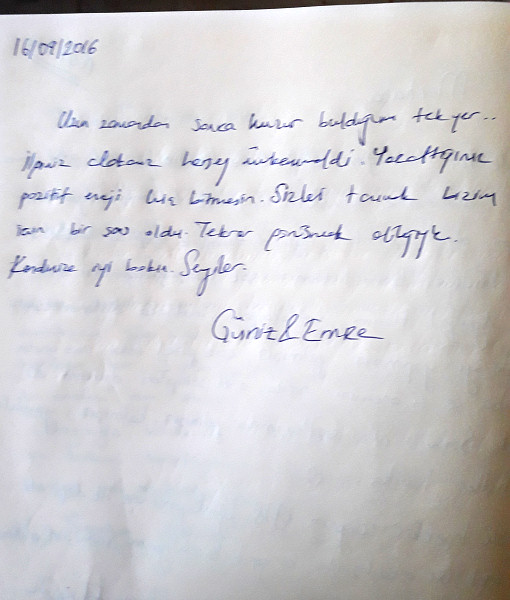 16/09/2016
Uzun zamandan sonra huzur bulduğum tek yer..
İlginiz herşey mükemmeldi. Yarattığınız
pozitif enerji hiç bitmesin. Sizleri tanımak bizim
için bir şans oldu. Tekrar görüşmek dileğiyle.
Kendinize iyi bakın. Sevgiler.
Güniz & Emre